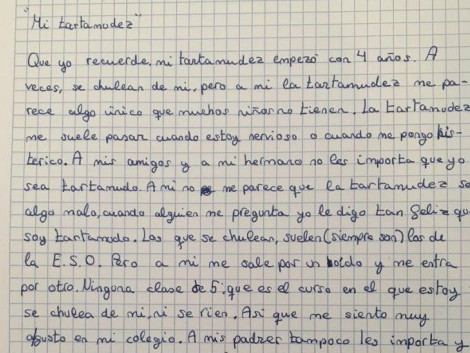 "Mi tartamudez"
Que yo recuerde, mi tartamudez empezó con 4 años. A
veces, se chulean de mi, pero a mi la tartamudez me pa-
rece algo único que muchos niños no tienen. La tartamudez
me suele pasar cuando estoy nervioso o cuando me pongo his-
terico. A mis amigos y a mi hermano no les importa que yo
sea tartamudo. A mi no me parece que la tartamudez se
algo malo, cuando alguien me pregunta yo le digo tan feliz qu
soy tartamudo. Los que se chulean, suelen (siempre son) los de
la E.S.O. Pero a mi me sale por un oido y me entra
por otro. Ninguna clase de 5º, que es el curso en el que estoy
se chulea de mi, ni se rien. Asi que me siento muy
agusto en mi colegio. A mis padres tampoco les importa y